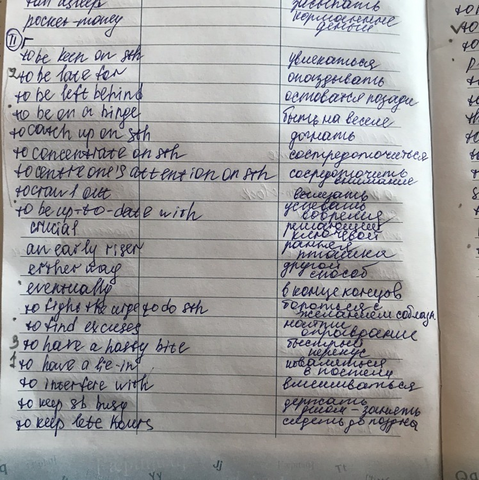 fall asleep засыпать
pocket-money карманные деньги
to be keen on sth увлекаться
to be late for опаздывать
to be left behind оставаться позади
to be on a binge быть на веселе
to catch up on sth догнать
to concentrate on sth
to centre one's attention on sth сосредоточить внимание
to crawl out вылезать
to be up-to-date with
crucial ключевой
an early riser ранняя пташка
either way другой способ
eventually в конце концов
to fight the urge to do sth бороться с желанием
to find excuses найти
to have a hasty bite быстрый перекус
to have a lie-in поваляться в постели
to interfere with вмешиваться
to keep sb busy держать делом - занять
to keep late hours сидеть до поздна